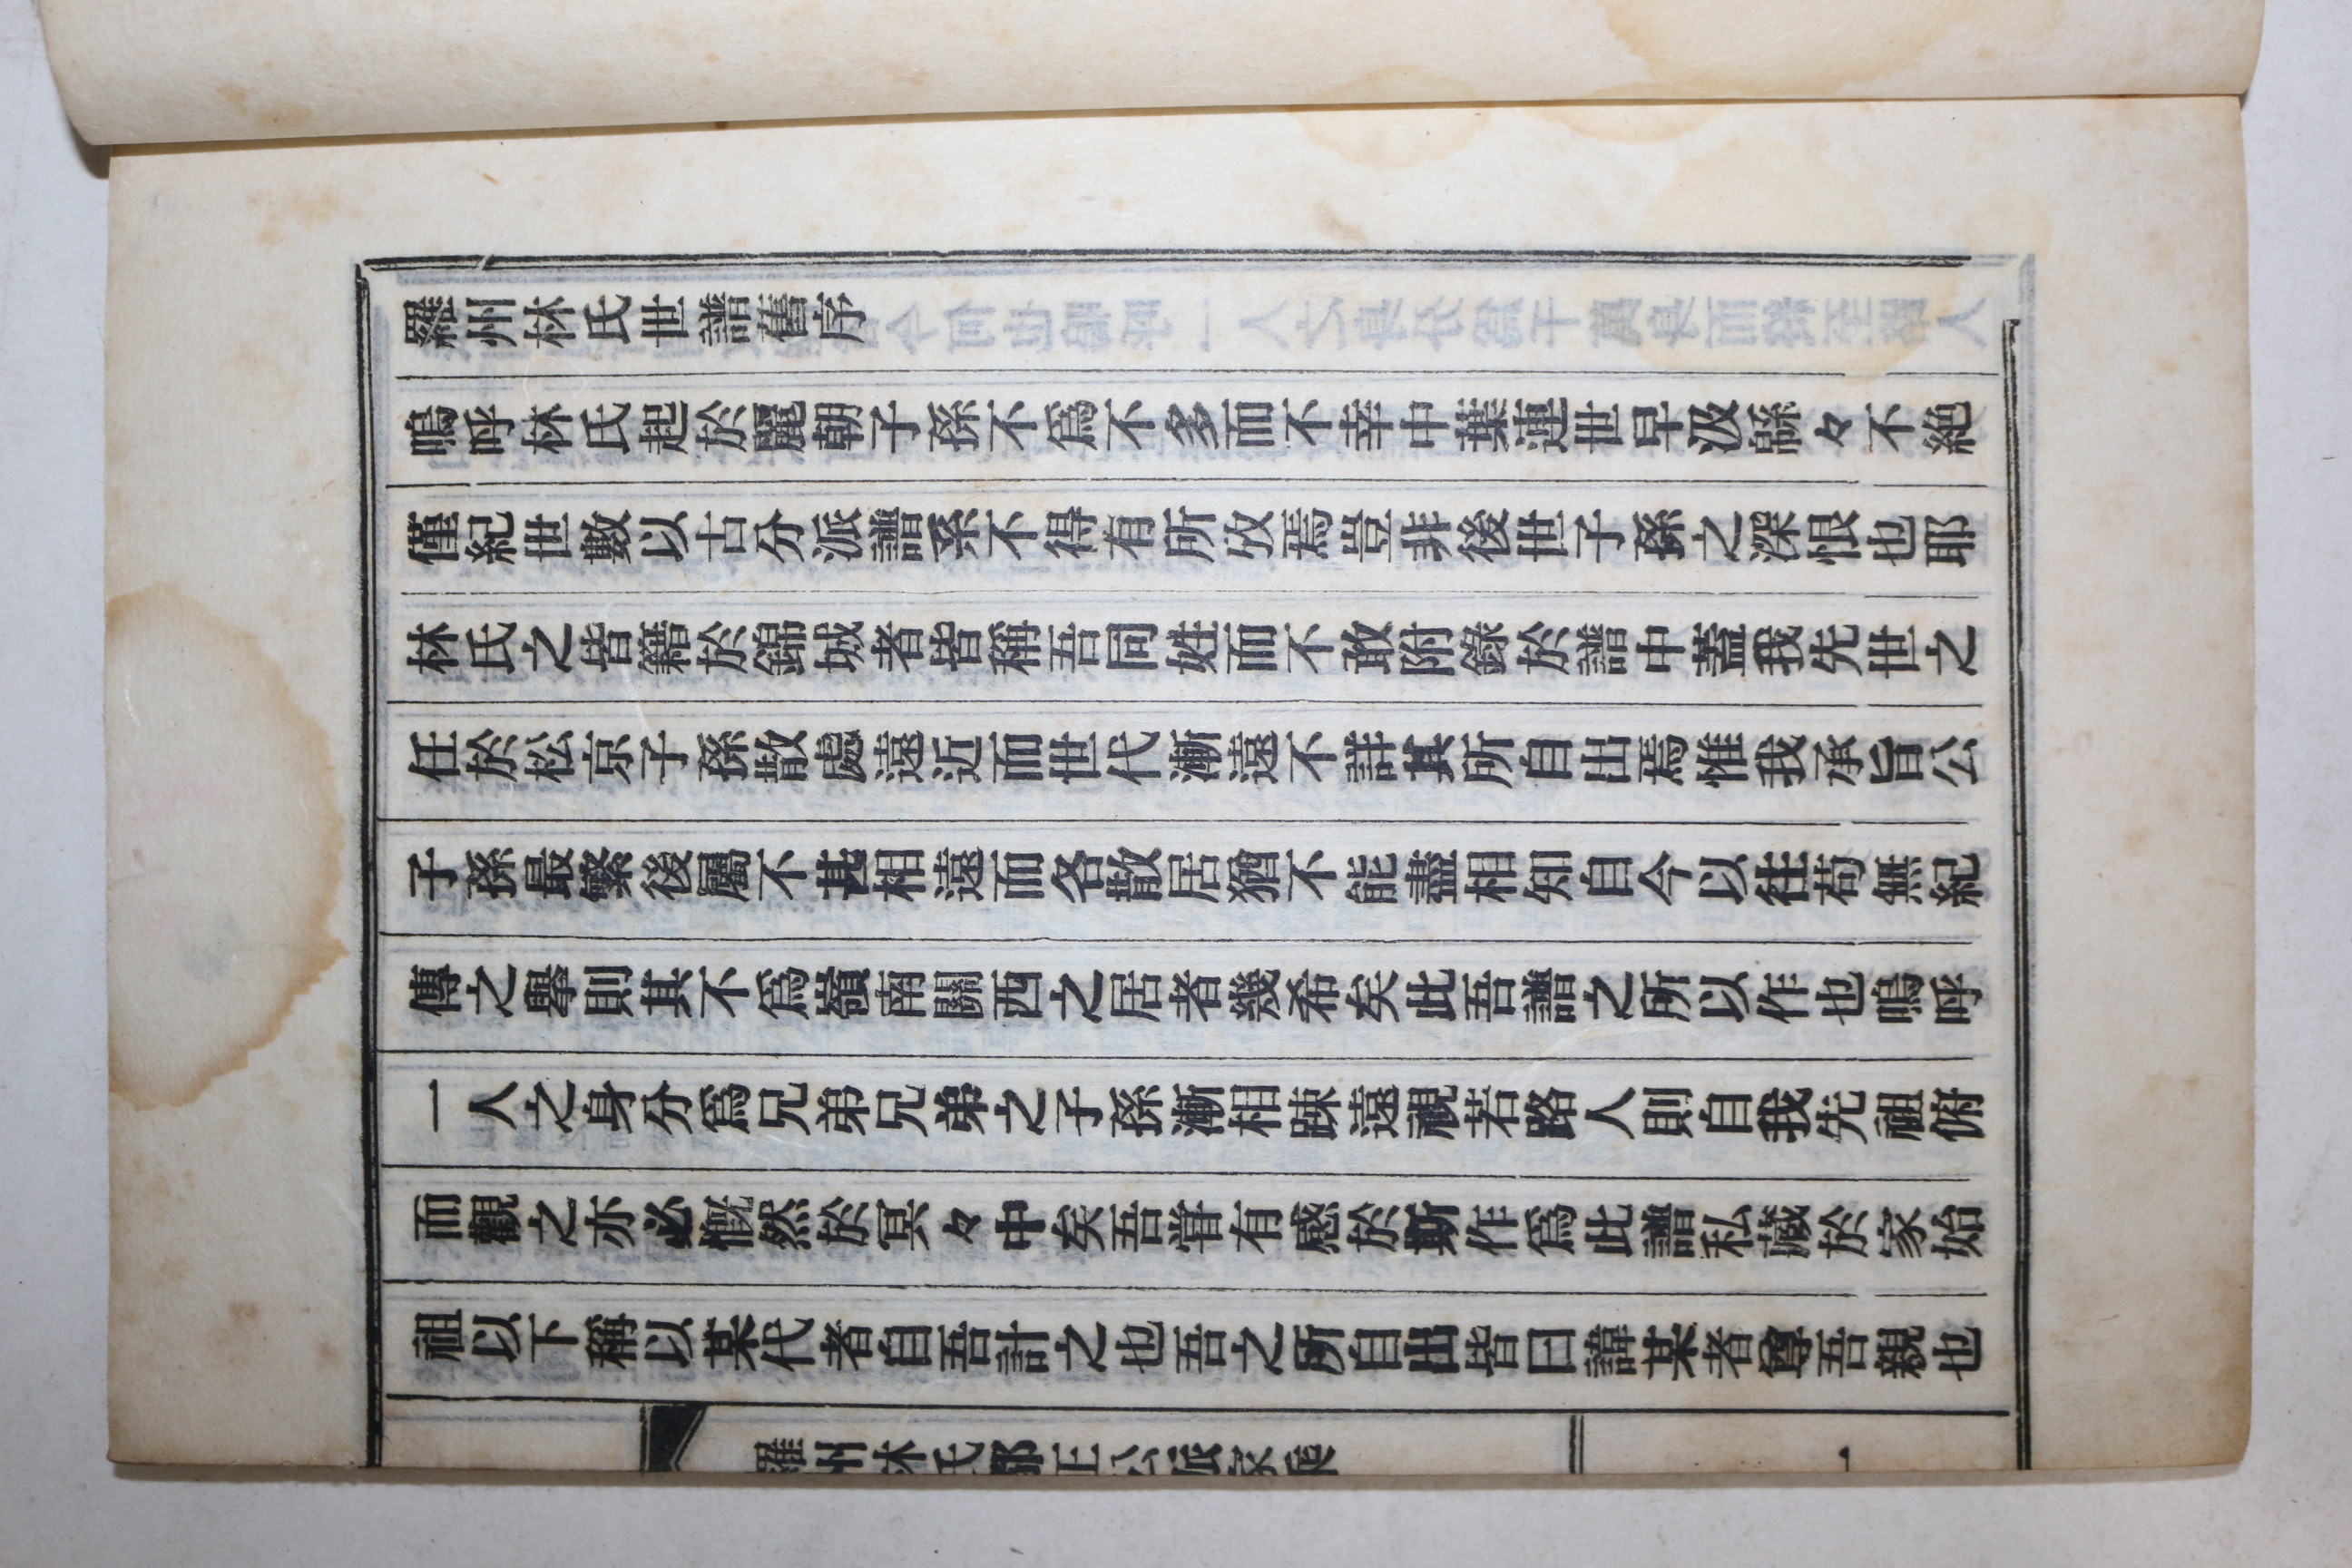 羅州林氏世譜舊序
嗚呼林氏起於麗朝子孫不爲不多而不幸中葉連世早汲緜々不絶
僅紀世數以古分派譜系不得有所攷焉豈非後世子孫之深恨也耶
林氏之皆籍於錦城者皆稱吾同姓而不敢附錄於譜中蓋我先世之
任於松京子孫散處遠近而世代漸遠不詳其所自出焉惟我承旨公
子孫最繁後屬不甚相遠而各散居猶不能盡相知自今以往苟無紀
傳之擧則其不爲嶺南關西之居者幾希矣此吾譜之所以作也嗚呼
一人之身分爲兄弟兄弟之子孫漸相踈遠視若路人則自我先祖俯
而觀之亦必慨然於冥々中矣吾甞有感於斯作爲此譜私藏於家始
祖以下稱以某代者自吾計之也吾之所自出皆曰諱某者尊吾親也
羅州林氏都正公派家乘
一